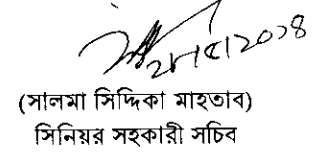 ২৮/৫/২০১৪
(সালমা সিদ্দিকা মাহতাব)
সিনিয়র সহকারী সচিব